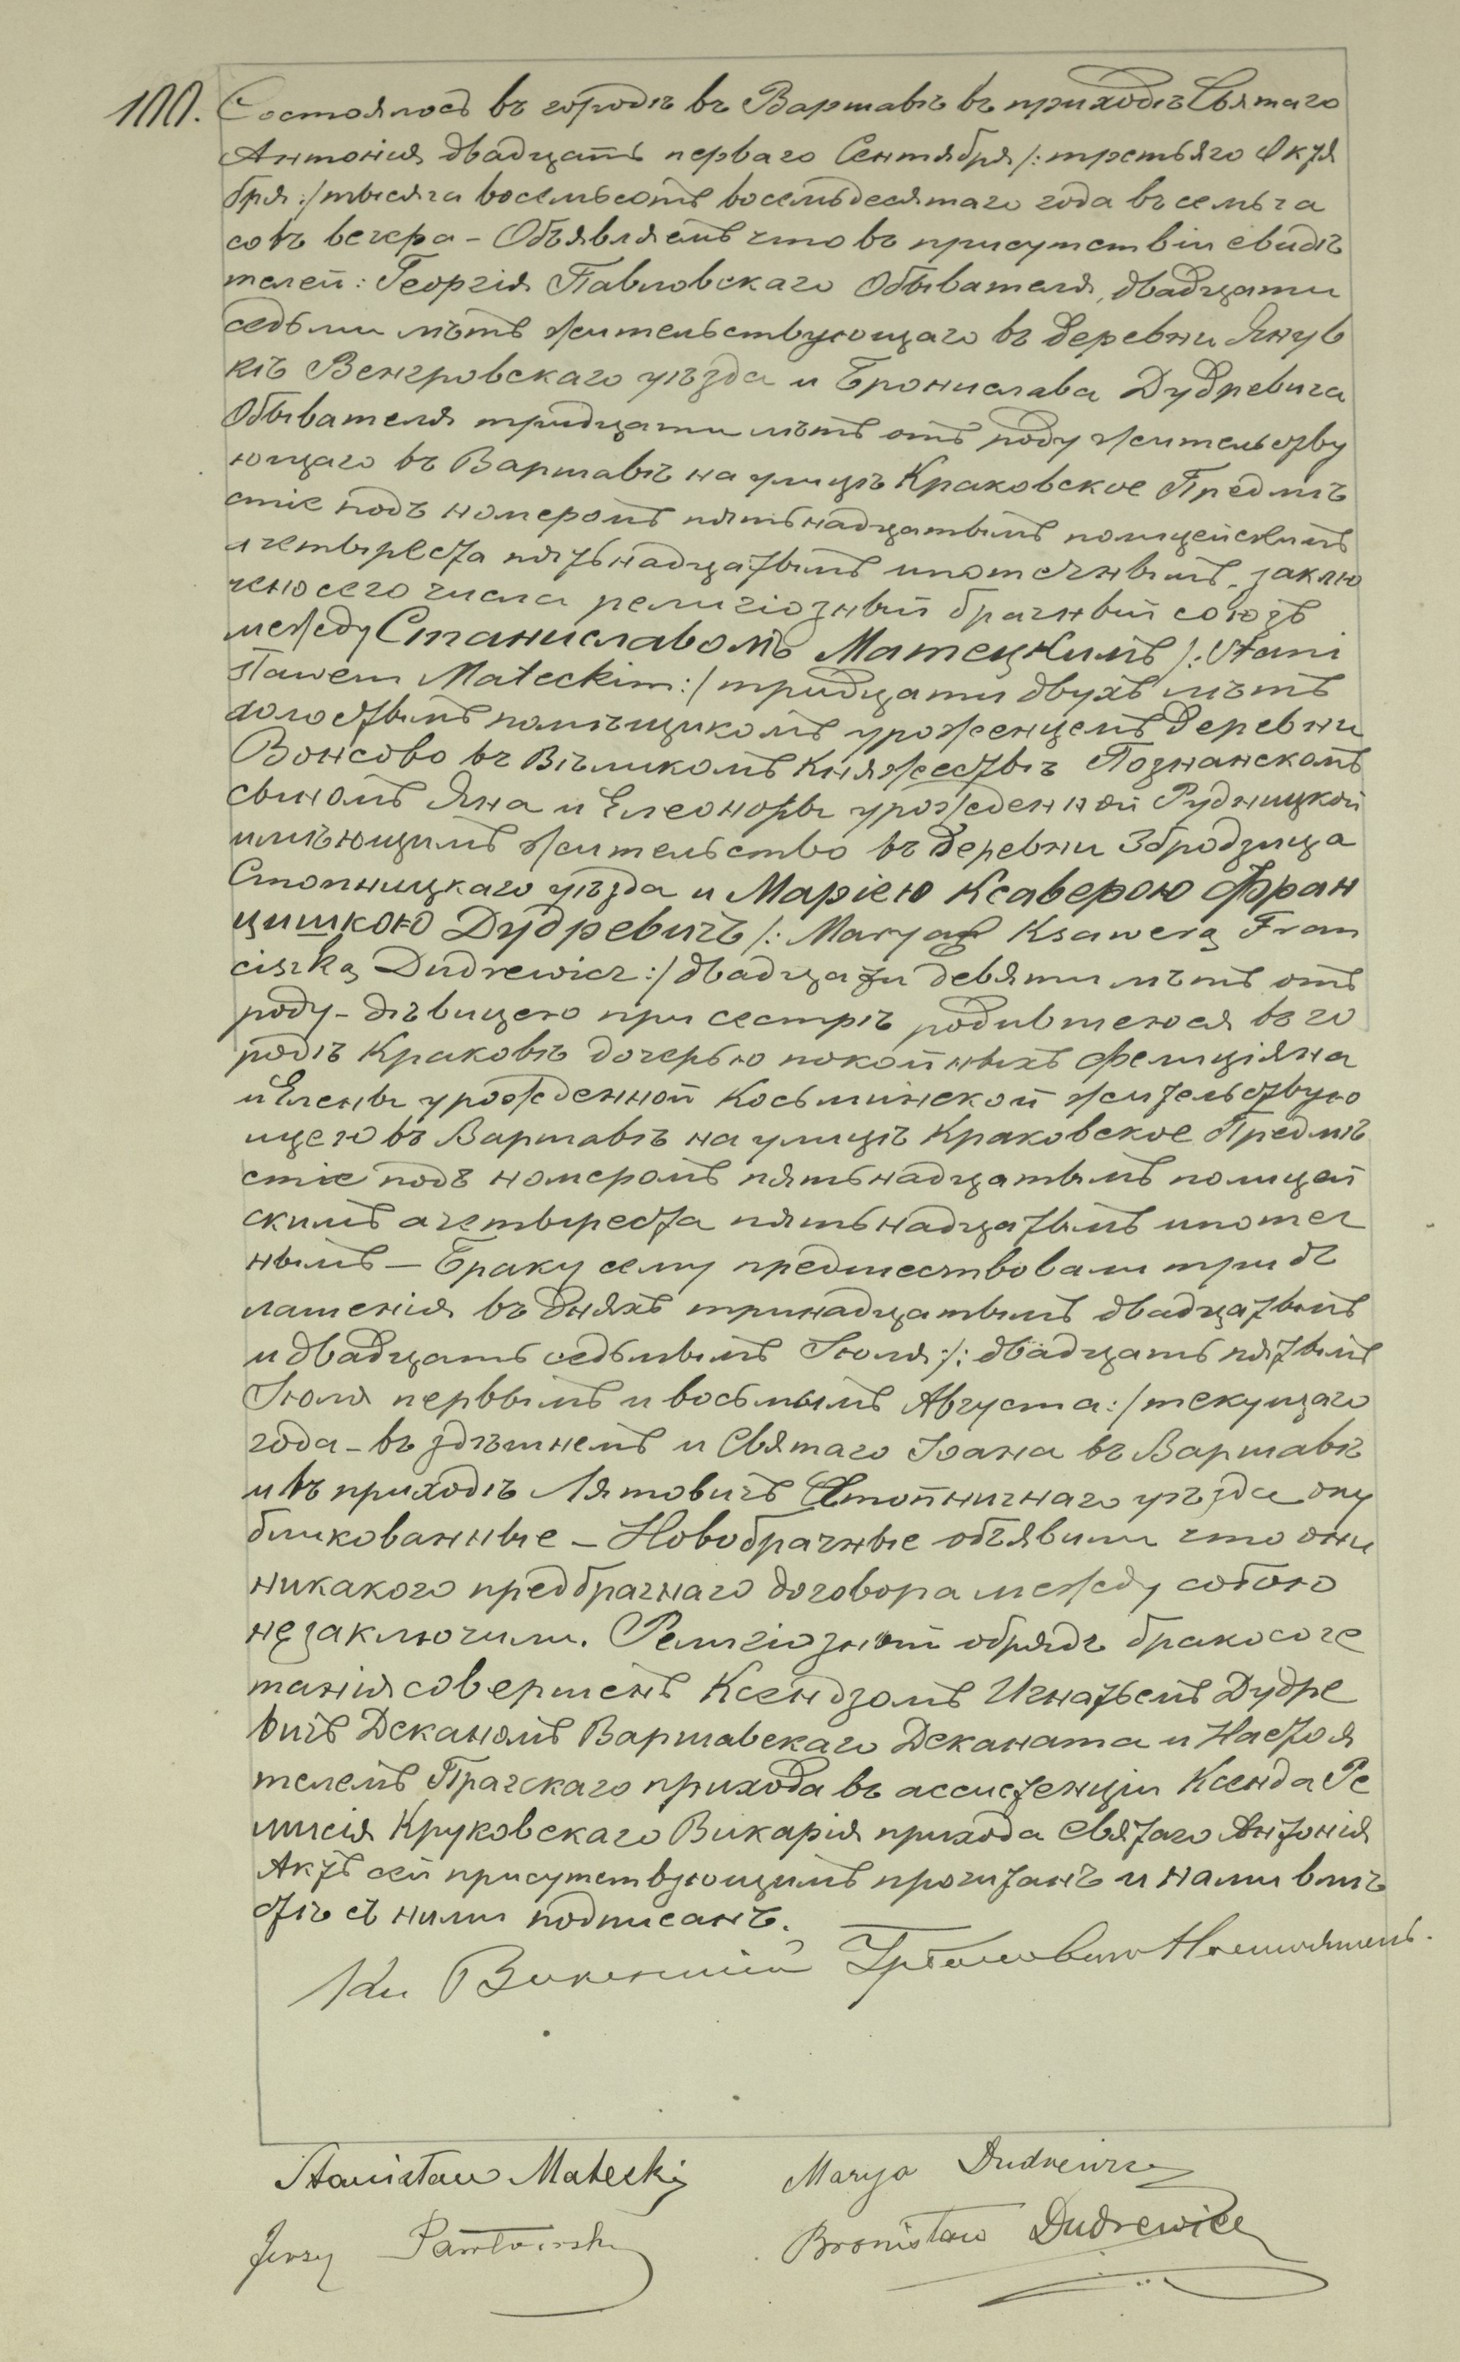 100. Состоялось въ городѣ въ Варшавѣ въ приходѣ Святаго
Антонія двадцать перваго Сентября /: третьяго Октя
бря :/ тысяча восемьсотъ восемьдесятаго года въ семь ча
совъ вечера – Объявляемъ что въ присутствіи свидѣ
телей: Георгія Павловскаго Обывателя, двадцати
седьми лѣтъ жительствующаго въ деревни Янув
кѣ Венгровскаго уѣзда и Бронислава Дудревича
Обывателя тридцати лѣтъ отъ роду жительству
ющаго въ Варшавѣ на улицѣ Краковское Предмѣ
стіе подъ номеромъ пятьнадцатымъ полицейскимъ
а четыреста пятьнадцатымъ ипотечнымъ, заклю
чено сего числа религіозный брачный союзъ
между Станиславомъ Матецкимъ /: Stani
sławem Mateckim :/ тридцати двухъ лѣтъ
холостымъ помѣщикомъ уроженцемъ деревни
Вонсово въ Вѣликомъ Княжествѣ Познанскомъ
сыномъ Яна и Елеоноры урожденной Рудницкой
имѣющимъ жительство въ деревни Збродзица
Стопницкаго уѣзда и Маріею Ксаверою Фран
цишкою Дудревичъ /: Maryą Ksawerą Fran
ciszką Dudrewicz :/ двадцати девяти лѣтъ отъ
роду – дѣвицею при сестрѣ родившеюся въ го
родѣ Краковѣ дочерью покойныхъ Фелиціяна
и Елены урожденной Косьминской жительствую
щею въ Варшавѣ на улицѣ Краковское Предмѣ
стіе подъ номеромъ пятьнадцатымъ полицей
скимъ а четыреста пятьнадцатымъ ипотеч
нымъ – Браку сему предшествовали три ог
лашенія въ дняхъ тринадцатымъ двадцатымъ
и двадцать седьмымъ Іюля /: двадцать пятымъ
Іюля первымъ и восьмымъ Августа :/ текущаго
года – въ здѣшнемъ и Святаго Іоана въ Варшавѣ
и въ приходѣ Лятовичъ Стопничнаго уѣзда опу
бликованные – Новобрачные объявили что они
никакого предбрачнаго договора между собою
не заключили. Религіозный обрядъ бракосоче
танія совершенъ Ксендзомъ Игнатьемъ Дудре
вичъ Деканомъ Варшавскаго Деканата и Настоя
телемъ Прагскаго прихода въ ассистенціи Ксенда Ре
мисія Круковскаго Викарія прихода Святаго Антонія
Актъ сей присутствующимъ прочитанъ и нами вмѣ
стѣ съ ними подписанъ.
Кс Викентій Настоятель.
Stanisław Matecki Marya Dudrewicz
Jerzy Pawłowski Bronisław Dudrewicz